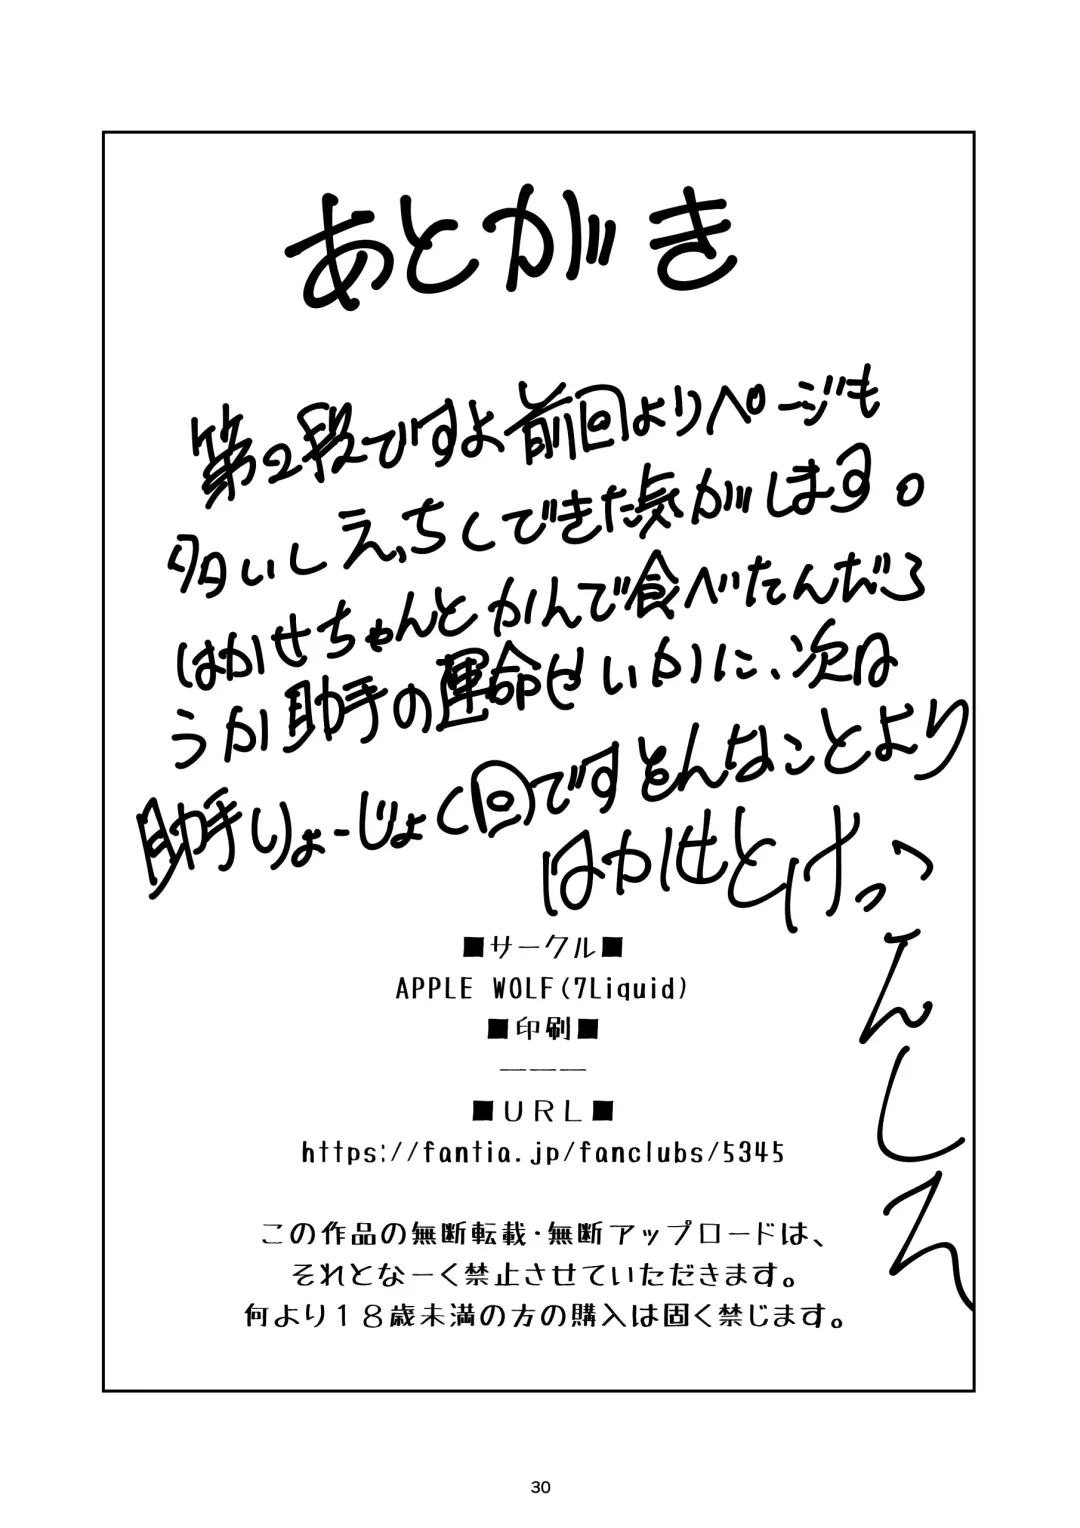 あとがき
第2段ですよ前回よりページも
多いしえっちしできた気がします。
はかせちゃんとかんで食べたんだろ
うか助手の運命せいかに、次は
助手りょーじょく回ですをんなことより
はかせとけっ
こんしろ
■サークル■
APPLE WOLF(7Liquid)
■印刷■
———
■URL■
https://fantia.jp/fanclubs/5345
この作品の無断転載・無断アップロードは、
それとなーく禁止させていただきます。
何より18歳未満の方の購入は固く禁じます。
30